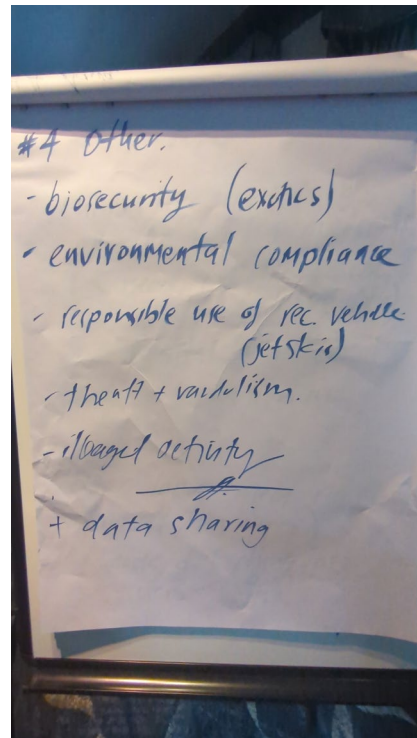 #4 Other.
- biosecurity (exotics)
- environmental compliance
- responsible use of rec. vehicle.
(jetskis)
- theaft + vandulism.
- illeagel activity
+ data sharing